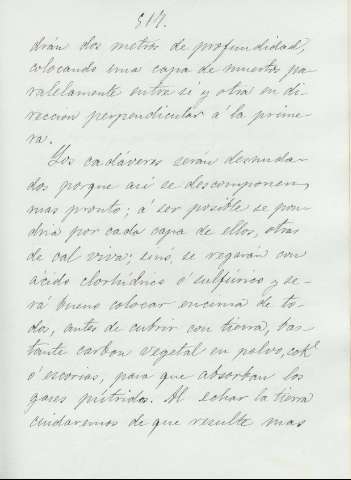 517.
drán dos metros de profundidad,
colocando una capa de muertos pa-
ralelamente entre sí y otra en di-
reccion perpendicular á la prime-
ra.
Los cadáveres serán desnuda-
dos porque así se descomponen
mas pronto; á ser posible se pon-
dria por cada capa de ellos, otras
de cal viva; sinó, se regarán con
ácido clorhídrico ó sulfúrico y se-
rá bueno colocar encima de to-
dos, antes de cubrir con tierra, bas-
tante carbon vegetal en polvo, cok
ó escorias, para que absorban los
gases pútridos. Al echar la tierra
cuidaremos de que resulte mas